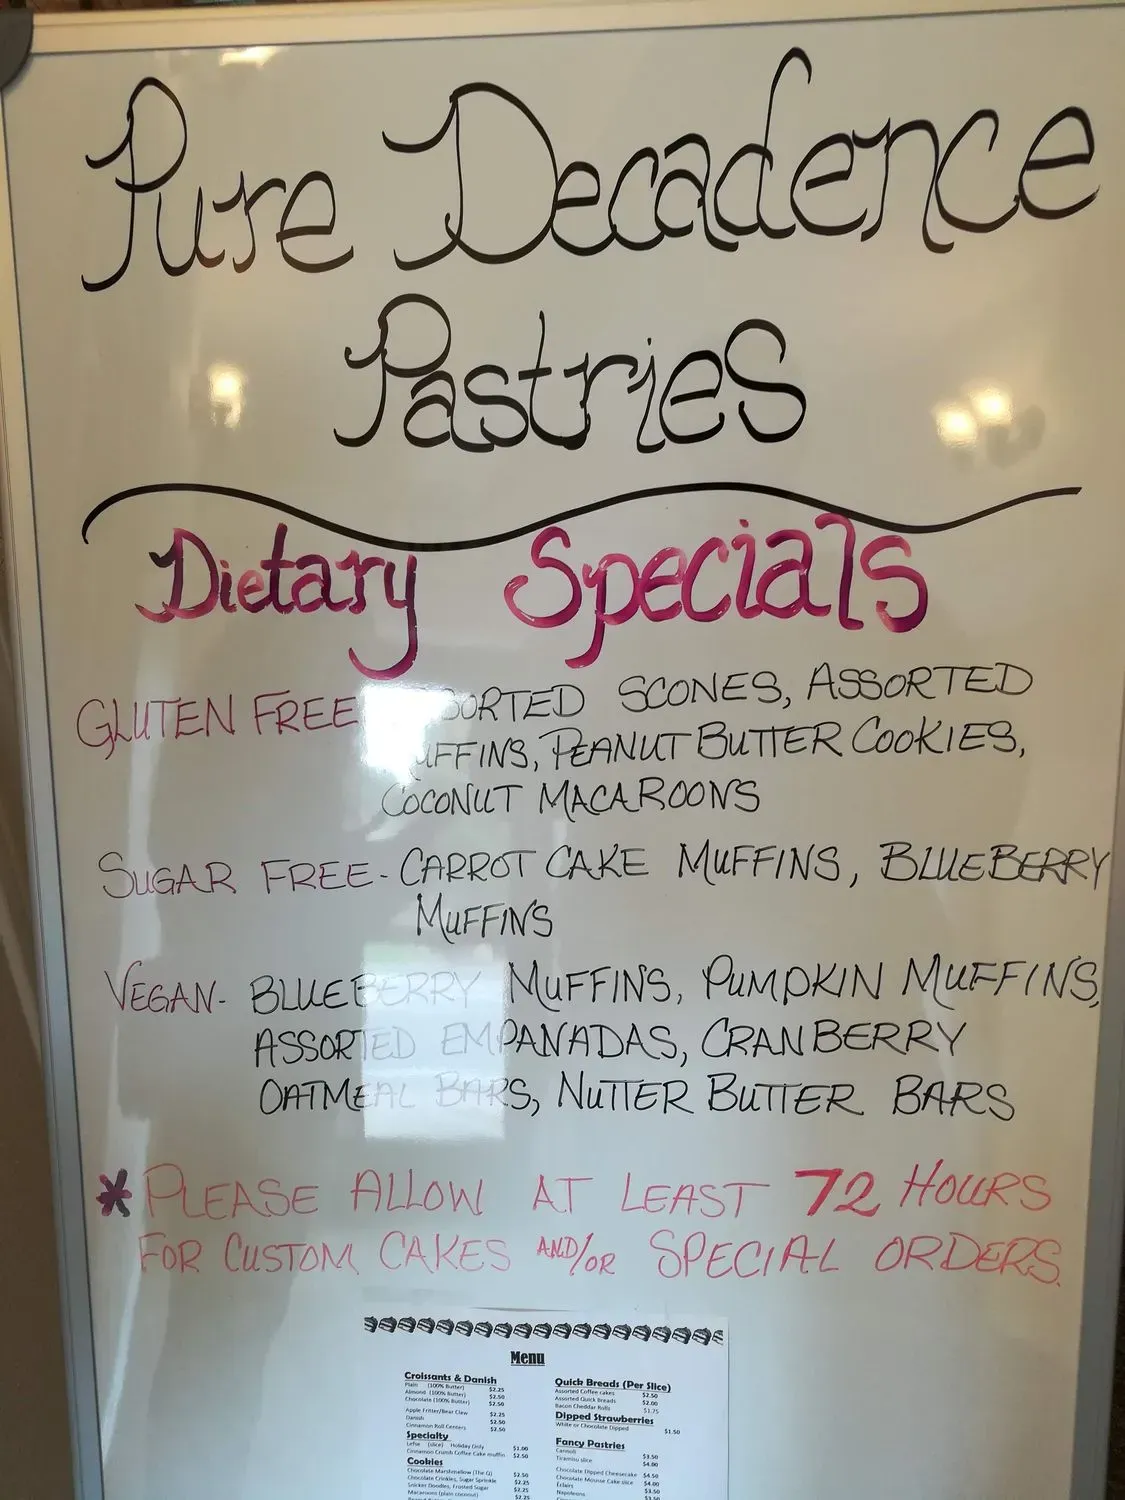 Pure Decadence
Pastries
Dietary Specials
GLUTEN FREE ASSORTED SCONES, ASSORTED
MUFFINS, PEANUT BUTTER COOKIES,
COCONUT MACAROONS
SUGAR FREE- CARROT CAKE MUFFINS, BLUEBERRY
MUFFINS
VEGAN- BLUEBERRY MUFFINS, PUMPKIN MUFFINS,
ASSORTED EMPANADAS, CRANBERRY
OATMEAL BARS, NUTTER BUTTER BARS
* PLEASE ALLOW AT LEAST 72 HOURS
FOR CUSTOM CAKES AND/OR SPECIAL ORDERS.
Menu
Croissants & Danish
Plain (100% Butter) $2.25
Almond (100% Butter) $2.50
Chocolate (100% Butter) $2.50
Apple Fritter/Bear Claw $2.25
Danish $2.50
Cinnamon Roll Centers $2.50
Specialty
Lefse (slice) Holiday Only $1.00
Cinnamon Crumb Coffee Cake muffin $2.50
Cookies
Chocolate Marshmallow (The Q) $2.50
Chocolate Crinkles, Sugar Sprinkle $2.25
Snicker Doodles, Frosted Sugar $2.25
Macaroons (plain coconut) $2.25
Quick Breads (Per Slice)
Assorted Coffee cakes $2.50
Assorted Quick Breads $2.00
Bacon Cheddar Rolls $1.75
Dipped Strawberries
White or Chocolate Dipped $1.50
Fancy Pastries
Cannoli $3.50
Tiramisu slice $4.00
Chocolate Dipped Cheesecake $4.50
Chocolate Mousse Cake slice $4.00
Eclairs $3.50
Napoleons $3.50